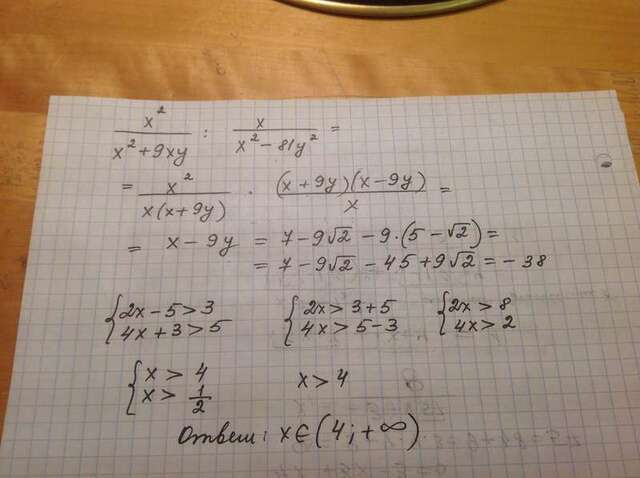 x²/(x²+9xy) : x/(x²-81y²) =
= x²/(x(x+9y)) · ((x+9y)(x-9y))/x =
= x-9y = 7-9√2-9·(5-√2) =
= 7-9√2-45+9√2 = -38
{2x-5>3 {2x>3+5 {2x>8
{4x+3>5 {4x>5-3 {4x>2
{x>4 x>4
{x>1/2
Ответ: x∈(4;+∞)